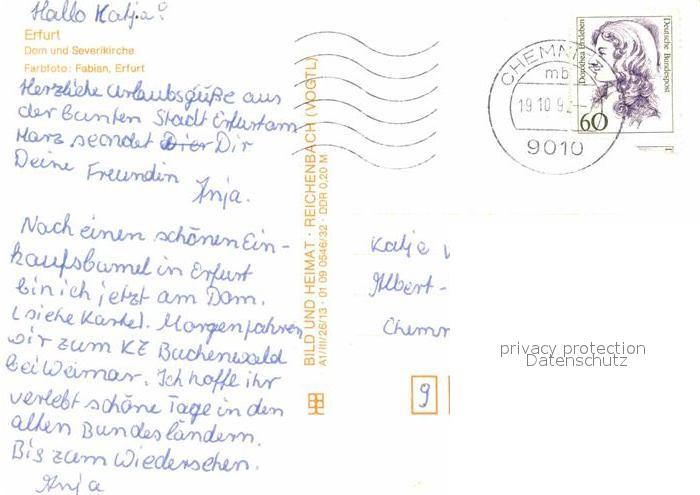 Hallo Katja!
Erfurt
Dom und Severikirche
Farbfoto: Fabian, Erfurt
Herzliche Urlaubsgrüße aus
der bunten Stadt Erfurt am
Harz sendet Dir
Deine Freundin
Anja.
Nach einen schönen Ein-
kaufsbumel in Erfurt
bin ich jetzt am Dom.
(siehe Karte). Morgen fahren
wir zum KZ Buchenwald
bei Weimar. Ich hoffe ihr
verlebt schöne Tage in den
alten Bundesländern.
Bis zum Wiedersehen.
Anja
BILD UND HEIMAT · REICHENBACH (VOGTL)
A1/III/26/13 · 01 09 0546/32 · DDR 0,20 M
CHEMN
mb
19.10.9
9010
Dorothea Erxleben
Deutsche Bundespost
60
Katja
Albert-
Chemn
9
privacy protection
Datenschutz